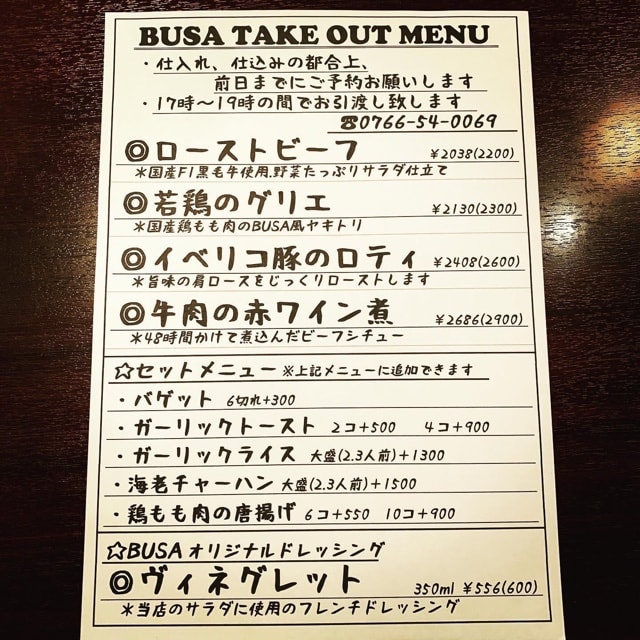 BUSA TAKE OUT MENU
・仕入れ、仕込みの都合上、
前日までにご予約お願いします
・17時～19時の間でお引渡し致します
☎0766-54-0069
◎ローストビーフ ￥2038(2200)
＊国産F1黒毛牛使用.野菜たっぷりサラダ仕立て
◎若鶏のグリエ ￥2130(2300)
＊国産鶏もも肉のBUSA風ヤキトリ
◎イベリコ豚のロティ ￥2408(2600)
＊旨味の肩ロースをじっくりローストします
◎牛肉の赤ワイン煮 ￥2686(2900)
＊48時間かけて煮込んだビーフシチュー
☆セットメニュー ※上記メニューに追加できます
・バゲット 6切れ+300
・ガーリックトースト 2コ+500 4コ+900
・ガーリックライス 大盛(2.3人前)+1300
・海老チャーハン 大盛(2.3人前)+1500
・鶏もも肉の唐揚げ 6コ+550 10コ+900
☆BUSAオリジナルドレッシング
◎ヴィネグレット 350ml ￥556(600)
＊当店のサラダに使用のフレンチドレッシング